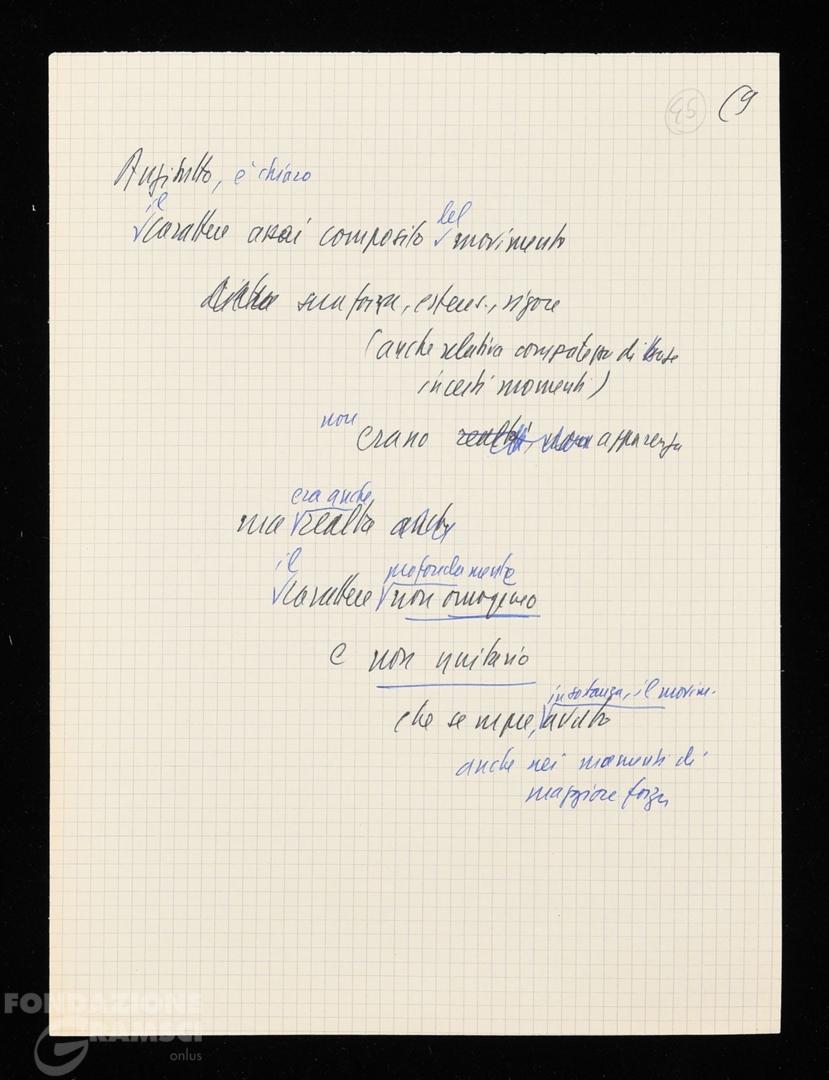 45 (9
Anzitutto, è chiaro
il
carattere assai composito del movimento
sua forza, estens., vigore
(anche relativa compattezza di base
in certi momenti)
non
erano apparenza
era anche
ma realtà anche
il profondamente
carattere non omogeneo
e non unitario
in sostanza, il movim.
che sempre, avuto
anche nei momenti di
maggiore forza
FONDAZIONE
GRAMSCI
onlus